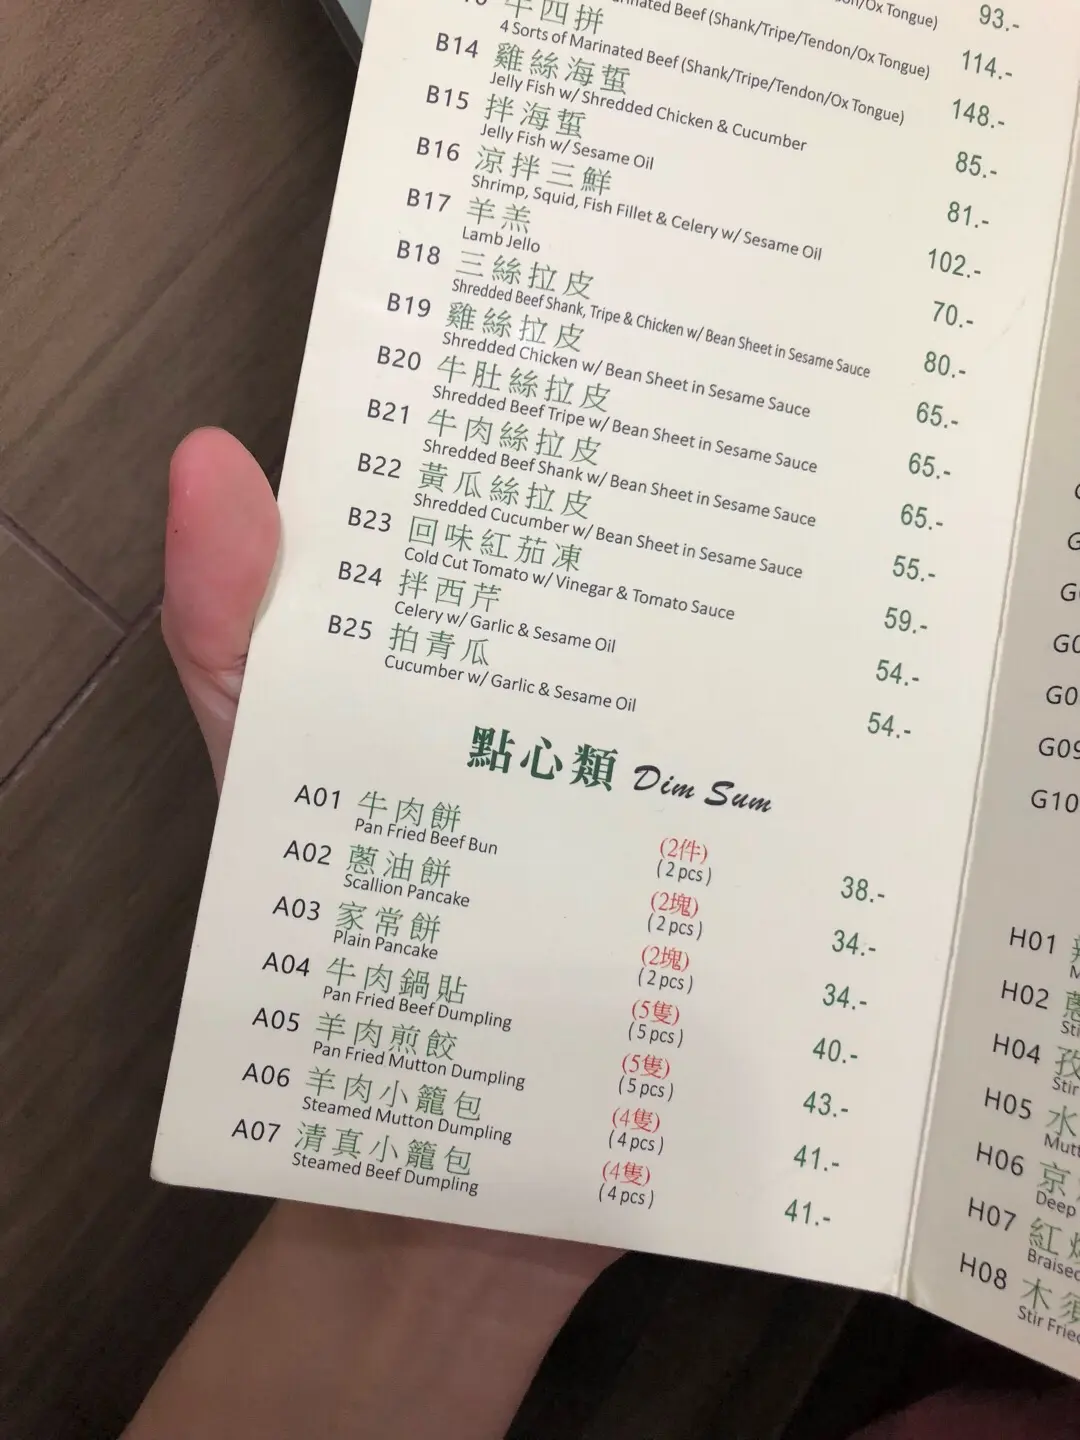 Ox Tongue)
93.-
Beef (Shank/Tripe/Tendon/Ox Tongue)
114.-
牛四拼
4 Sorts of Marinated Beef (Shank/Tripe/Tendon/Ox Tongue)
148.-
B14 雞絲海蜇
Jelly Fish w/ Shredded Chicken & Cucumber
85.-
B15 拌海蜇
Jelly Fish w/ Sesame Oil
81.-
B16 涼拌三鮮
Shrimp, Squid, Fish Fillet & Celery w/ Sesame Oil
102.-
B17 羊羔
Lamb Jello
70.-
B18 三絲拉皮
Shredded Beef Shank, Tripe & Chicken w/ Bean Sheet in Sesame Sauce
80.-
B19 雞絲拉皮
Shredded Chicken w/ Bean Sheet in Sesame Sauce
65.-
B20 牛肚絲拉皮
Shredded Beef Tripe w/ Bean Sheet in Sesame Sauce
65.-
B21 牛肉絲拉皮
Shredded Beef Shank w/ Bean Sheet in Sesame Sauce
65.-
B22 黃瓜絲拉皮
Shredded Cucumber w/ Bean Sheet in Sesame Sauce
55.-
B23 回味紅茄凍
Cold Cut Tomato w/ Vinegar & Tomato Sauce
59.-
B24 拌西芹
Celery w/ Garlic & Sesame Oil
54.-
B25 拍青瓜
Cucumber w/ Garlic & Sesame Oil
54.-
點心類 Dim Sum
A01 牛肉餅 (2件) 38.-
Pan Fried Beef Bun (2 pcs)
A02 蔥油餅 (2塊) 34.-
Scallion Pancake (2 pcs)
A03 家常餅 (2塊) 34.-
Plain Pancake (2 pcs)
A04 牛肉鍋貼 (5隻) 40.-
Pan Fried Beef Dumpling (5 pcs)
A05 羊肉煎餃 (5隻) 43.-
Pan Fried Mutton Dumpling (5 pcs)
A06 羊肉小籠包 (4隻) 41.-
Steamed Mutton Dumpling (4 pcs)
A07 清真小籠包 (4隻) 41.-
Steamed Beef Dumpling (4 pcs)
G09
G10
H01
H02 蔥
H04 孜
Stir
H05 水
H06 京
Deep
H07 紅燒
Braised
H08 木須
Stir Fried